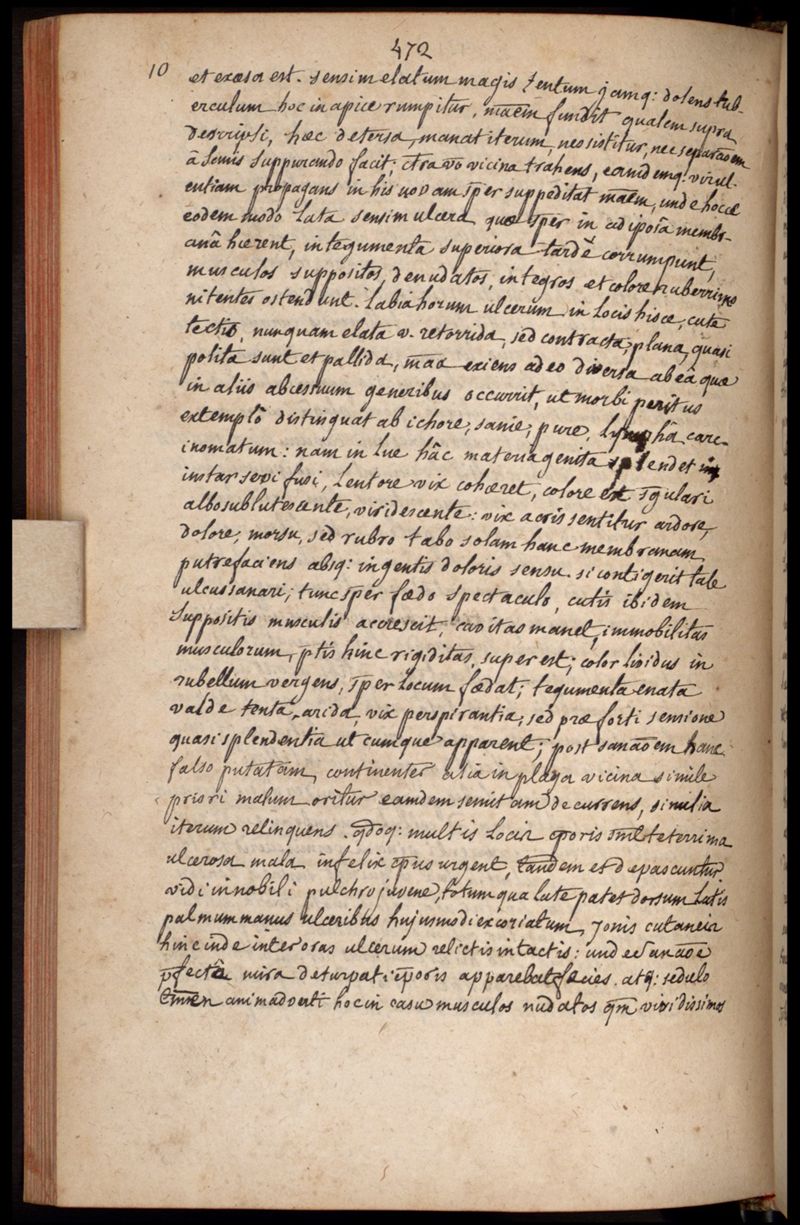 472
10 et exæsa est. sensim elatum magis tentum jamq: dolens tub-
erculum hoc in apice rumpitur, māēm fundit qualem supra
descripsi, hæc detersa, manat iterum, nec sistitur, nec separāōem
â semis suppurando facit; c̄tra v̄o vicina trahens, eamdemq: virul-
entiam propagans in his novam s̄per suppeditat māēm, unde hocce
eodem modo lata sensim ulcera quæ s̄per in adiposâ membr-
anâ hærent, integumenta superiora tardè corrumpunt,
musculos suppositos, denudatos, integros et colore ruberrimo
nitentes ostendunt. labia horum ulcerum in locis hisce, cute
tectis, nunquam elata v. retorrida, sed contracta, plana, quasi
polita sunt et pallida, māā exiens adeo diversa ab eâ quæ
in aliis abcessuum generibus occurrit, ut morbi peritus
extemplô distinguat ab ichore, sanie, pure, lymphâ carc-
inomatum: nam in lue hâc materia genita splendet
instar sevi fusi, lentore vix cohæret, colore est s̄gulari
albo sublutescente, viridescente: vix acris sentitur ardore,
dolore, morsu, sed rubro tabo solam hanc membranam
putrefaciens absq: ingentis doloris sensu. si contigerit tale
ulcus sanari, tunc s̄per fœdo spectaculo, cutis ibidem
suppositis musculis accrescit, cavitas manet, immobilitas
musculorum, p̄tis hinc rigiditas, superest; color lividus in
rubellum vergens, s̄per locum fœdat; tegumenta enata
valde tenta, arida, vix perspirantia, sed præ forti tensione
quasi splendentia utcumque apparent; post sanāōem hanc
falso putatam, continenter alia in plaga vicina simile
priori malum oritur eamdem semitam decurrens, similia
iterum relinquens. qdoq: multis locis c̄poris s̄ml teterrima
ulcerosa mala infelix c̄pus urgent, tandem et depascuntur
vidi in nobili pulchro juvene, totum qua late patet dorsum latis
palmum manus ulceribus hujusmodi excoriatum, zonis cutaneis
hinc inde inter oras ulcerum relictis intactis: unde sanāōe
p̄fectâ mira deturpati c̄poris apparebat facies. atq: sedulo
tamen animadverti hoc in casu musculos nudatos q̄m vividissimos